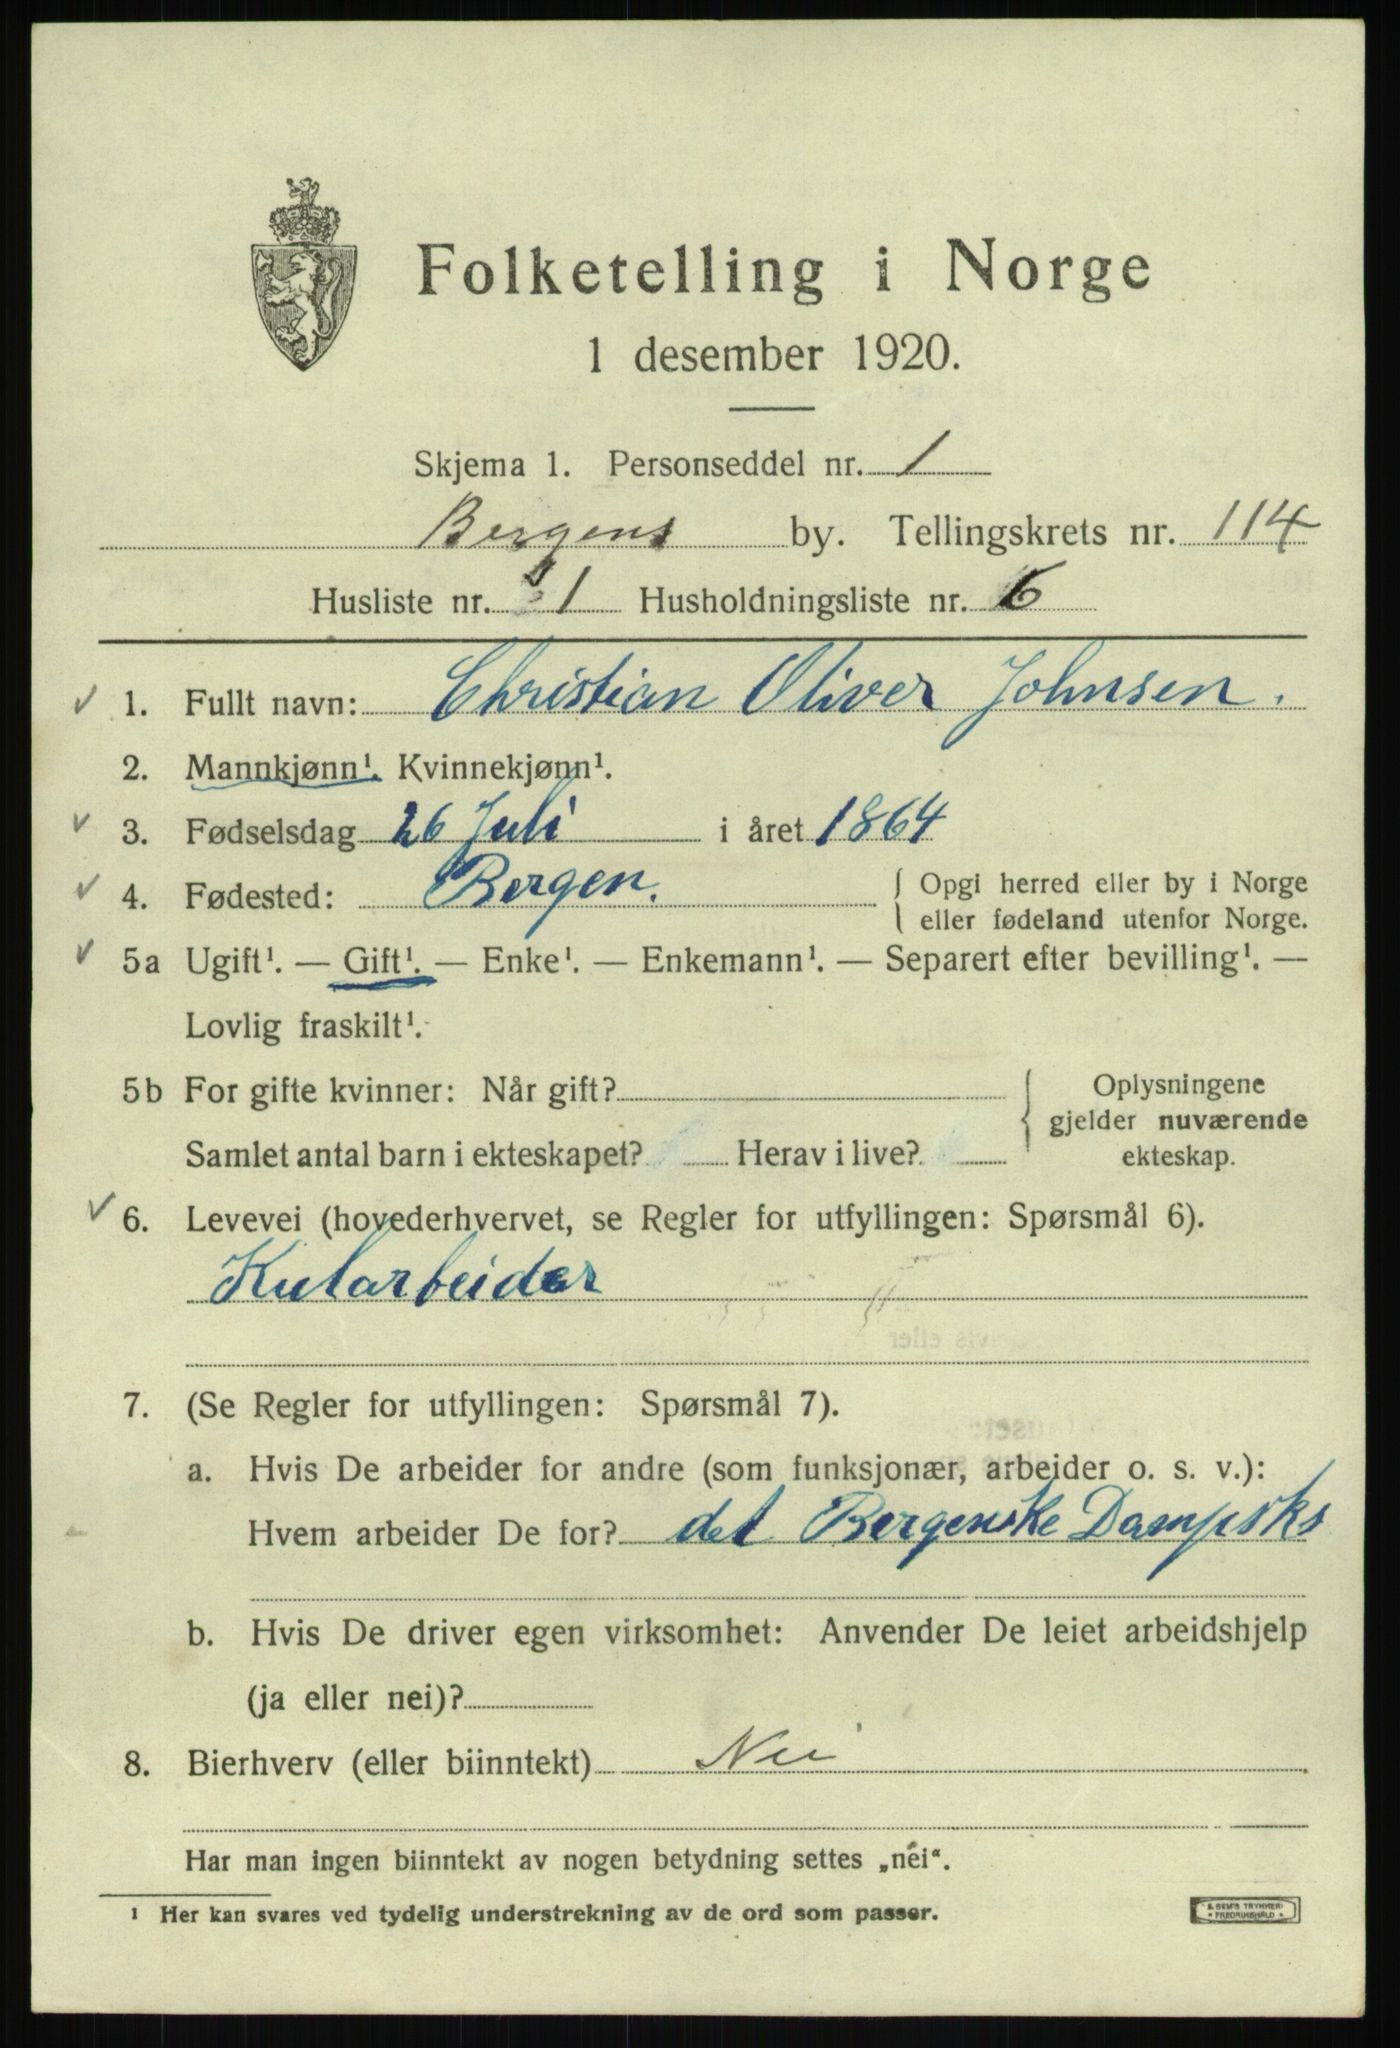 Folketelling i Norge
1 desember 1920.
Skjema 1. Personseddel nr. 1
Bergens by. Tellingskrets nr. 114
Husliste nr. 1 Husholdningsliste nr. 6
1. Fullt navn: Christian Oliver Johnsen.
2. Mannkjønn¹. Kvinnekjønn¹.
3. Fødselsdag 26 Juli i året 1864
4. Fødested: Bergen. { Opgi herred eller by i Norge
eller fødeland utenfor Norge.
5a Ugift¹. — Gift¹. — Enke¹. — Enkemann¹. — Separert efter bevilling¹. —
Lovlig fraskilt¹.
5b For gifte kvinner: Når gift? { Oplysningene
gjelder nuværende
Samlet antal barn i ekteskapet? Herav i live? ekteskap.
6. Levevei (hovederhvervet, se Regler for utfyllingen: Spørsmål 6).
Kularbeider
7. (Se Regler for utfyllingen: Spørsmål 7).
a. Hvis De arbeider for andre (som funksjonær, arbeider o. s. v.):
Hvem arbeider De for? det Bergenske Dampsks
b. Hvis De driver egen virksomhet: Anvender De leiet arbeidshjelp
(ja eller nei)?
8. Bierhverv (eller biinntekt) Nei
Har man ingen biinntekt av nogen betydning settes „nei“.
¹ Her kan svares ved tydelig understrekning av de ord som passer.
FREDRIKSHALD